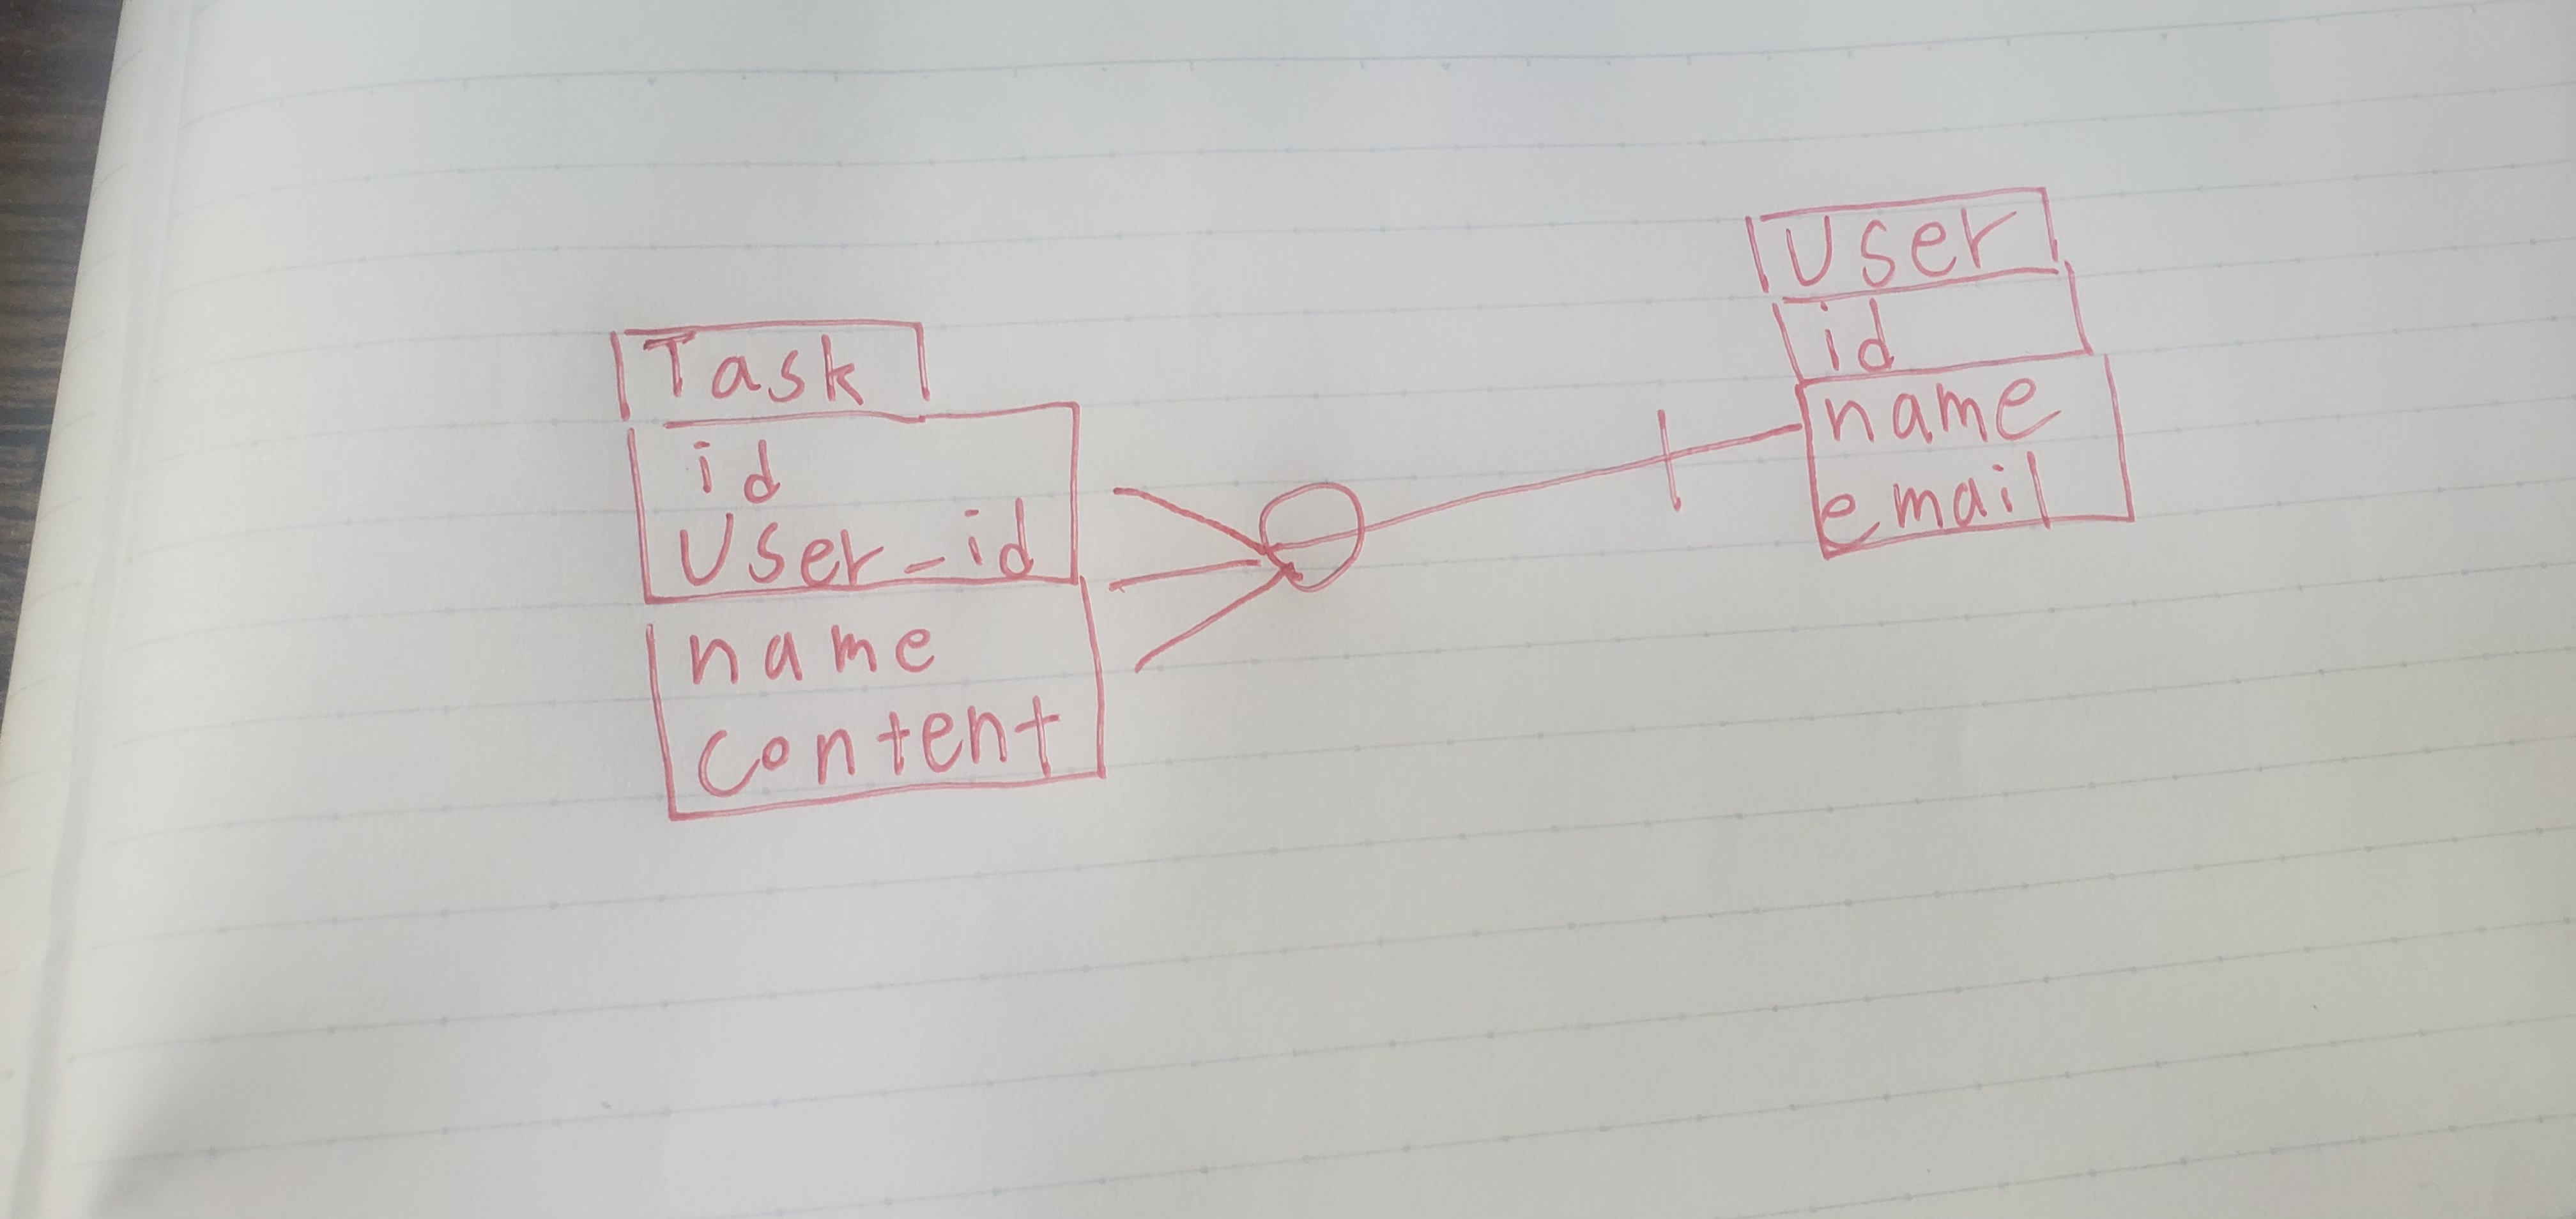 Task
id
User-id
name
content
User
id
name
email